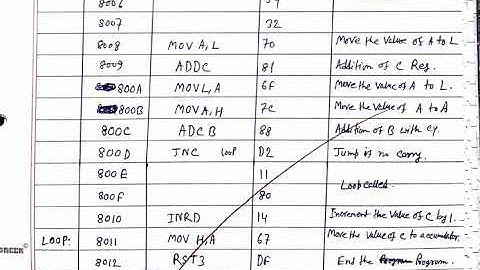 8006
8007 32
8008 MOV A,L 70 Move the Value of A to L.
8009 ADDC 81 Addition of C Reg.
800A MOV L,A 6F Move the Value of A to L.
800B MOV A,H 7C Move the Value of A to A
800C ADC B 88 Addition of B with cy.
800D JNC loop D2 Jump is no carry.
800E 11
Loop called.
800F 80
8010 INRD 14 Increment the Value of C by 1.
LOOP: 8011 MOV H,A 67 Move the Value of C to accumulator.
8012 RST3 DF End the Program.